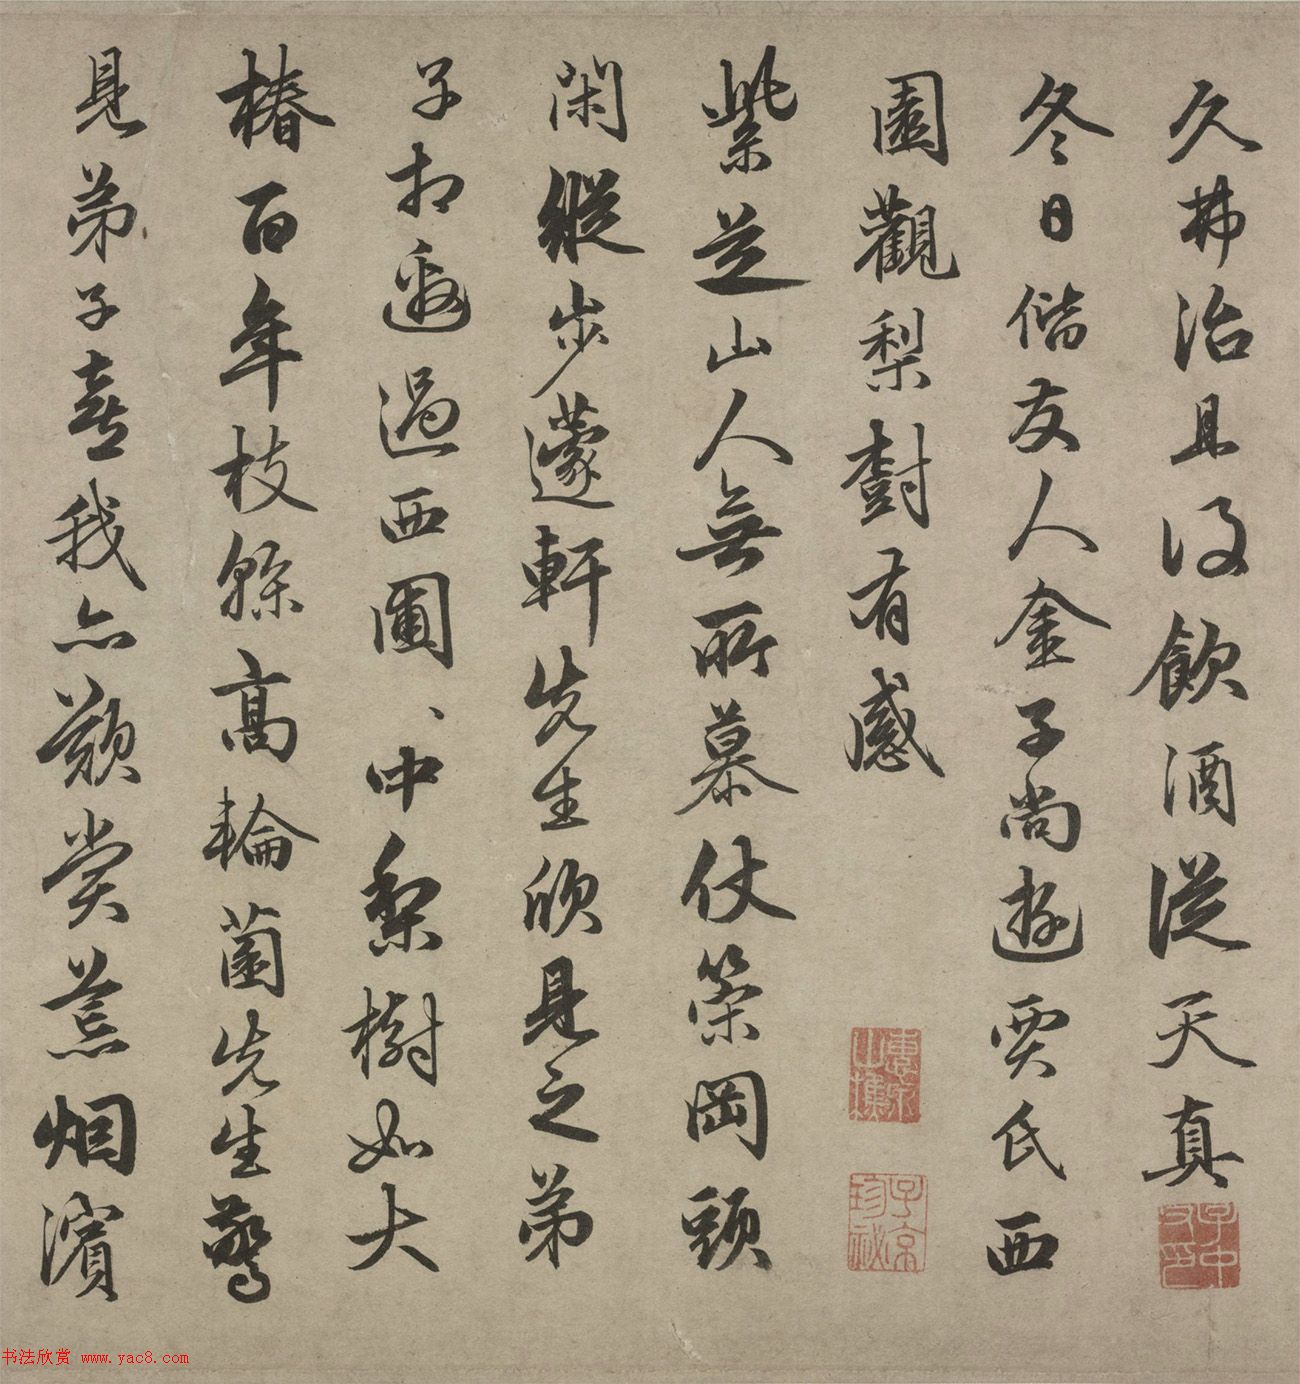 久弗治具设飲酒從天真
冬日偕友人金子尚遊賈氏西
園觀梨樹有感
紫芝山人無所慕仗策岡頭
閑縱步蘧軒先生欣見之弟
子相邀過西圃、中梨樹如大
椿百年枝幹高輪菌先生驚
見弟子喜我亦歎賞荒烟濱
子京
珍祕
书法欣赏 www.yac8.com